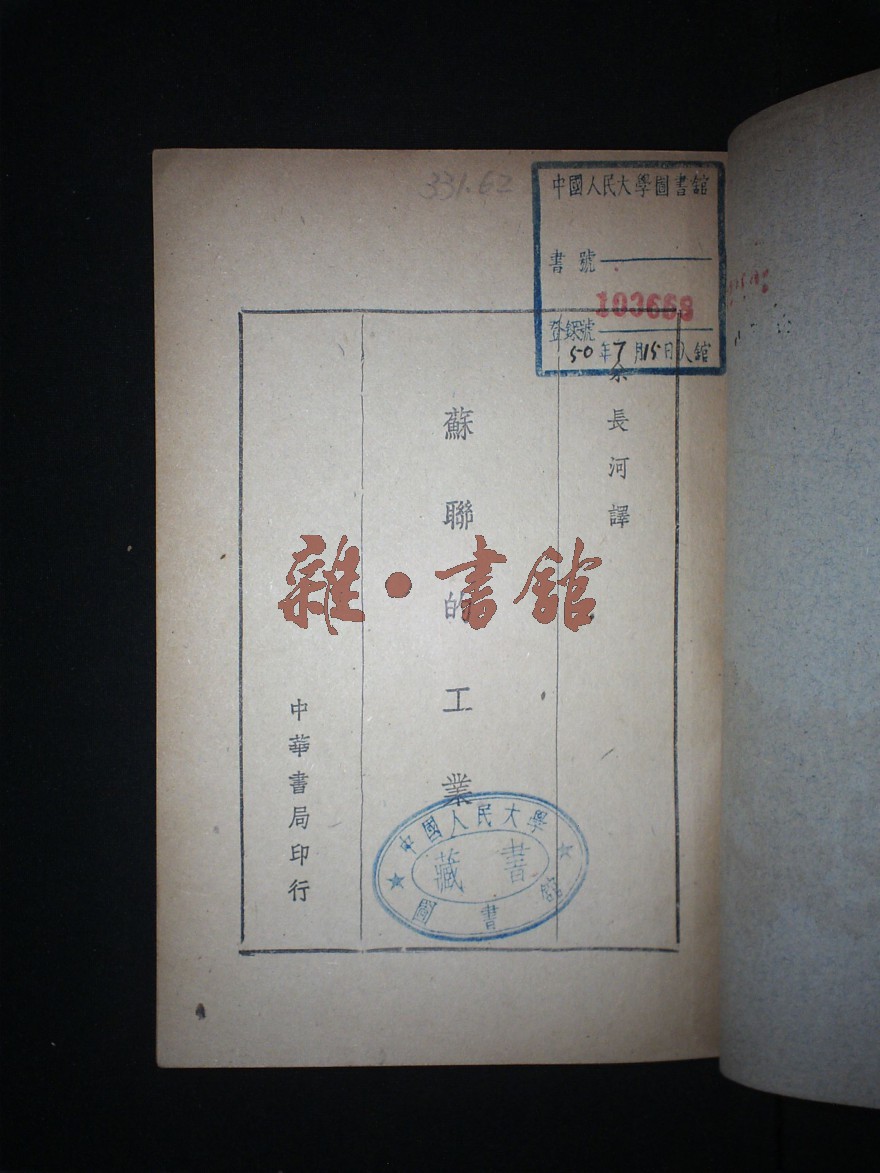 331.62
中國人民大學圖書館
書號
103668
登錄號
50年7月15日入館
余長河譯
蘇聯的工業
中華書局印行
雜·書館
中國人民大學
藏書
圖書館